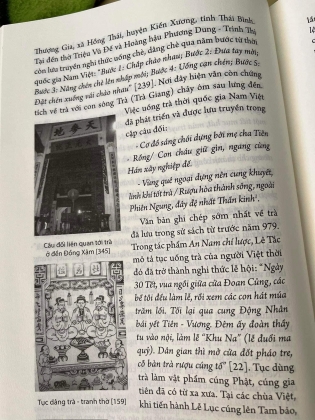 Thượng Gia, xã Hồng Thái, huyện Kiến Xương, tỉnh Thái Bình.
Tại đền thờ Triệu Vũ Đế và Hoàng hậu Phương Dung - Trình Thị
còn lưu truyền nghi thức uống chè, dâng chè qua năm bước từ thời
quốc gia Nam Việt: "Bước 1: Chắp chào nhau; Bước 2: Đưa tay mời;
Bước 3: Nâng chén chè lên nhấp môi; Bước 4: Uống cạn chén; Bước 5:
Đặt chén xuống vái chào nhau" [239]. Nơi đây hiện vẫn còn chứng
tích về trà với con sông Trà (Trà Giang) chảy ôm sau lưng đền.
Việc uống trà thời quốc gia Nam Việt
đã phát triển và được lưu truyền trong
cặp câu đối:
- Cơ đồ sáng chói dựng bởi mẹ cha Tiên
- Rồng/ Con cháu giữ gìn, ngang cùng
Hán xây nghiệp đế.
- Vùng quê ngoại dựng nên cung khuyết,
linh khí tốt trà / Rượu hòa thành sông, ngoài
Phiên Ngung, đây đệ nhất Thần kinh¹.
Văn bản ghi chép sớm nhất về trà
đã lưu trong sử sách từ trước năm 979.
Trong tác phẩm An Nam chí lược, Lê Tắc
mô tả tục uống trà của người Việt thời
đó đã trở thành nghi thức lễ hội: "Ngày
30 Tết, vua ngồi giữa cửa Đoan Củng, các
bề tôi đều làm lễ, rồi xem các con hát múa
trăm lối. Tối lại qua cung Động Nhân
bái yết Tiên - Vương. Đêm ấy đoàn thầy
tu vào nội, làm lễ "Khu Na" (lễ đuổi ma
quỷ). Dân gian thì mở cửa đốt pháo tre,
cỗ bàn trà rượu cúng tổ" [22]. Tục dùng
trà làm vật phẩm cúng Phật, cúng gia
tiên đã có từ xa xưa. Tại các chùa Việt,
khi tiến hành Lễ Lục cúng lên Tam bảo,
Câu đối liên quan tới trà
ở đền Đồng Xâm [345]
Tục dâng trà - tranh thờ [159]